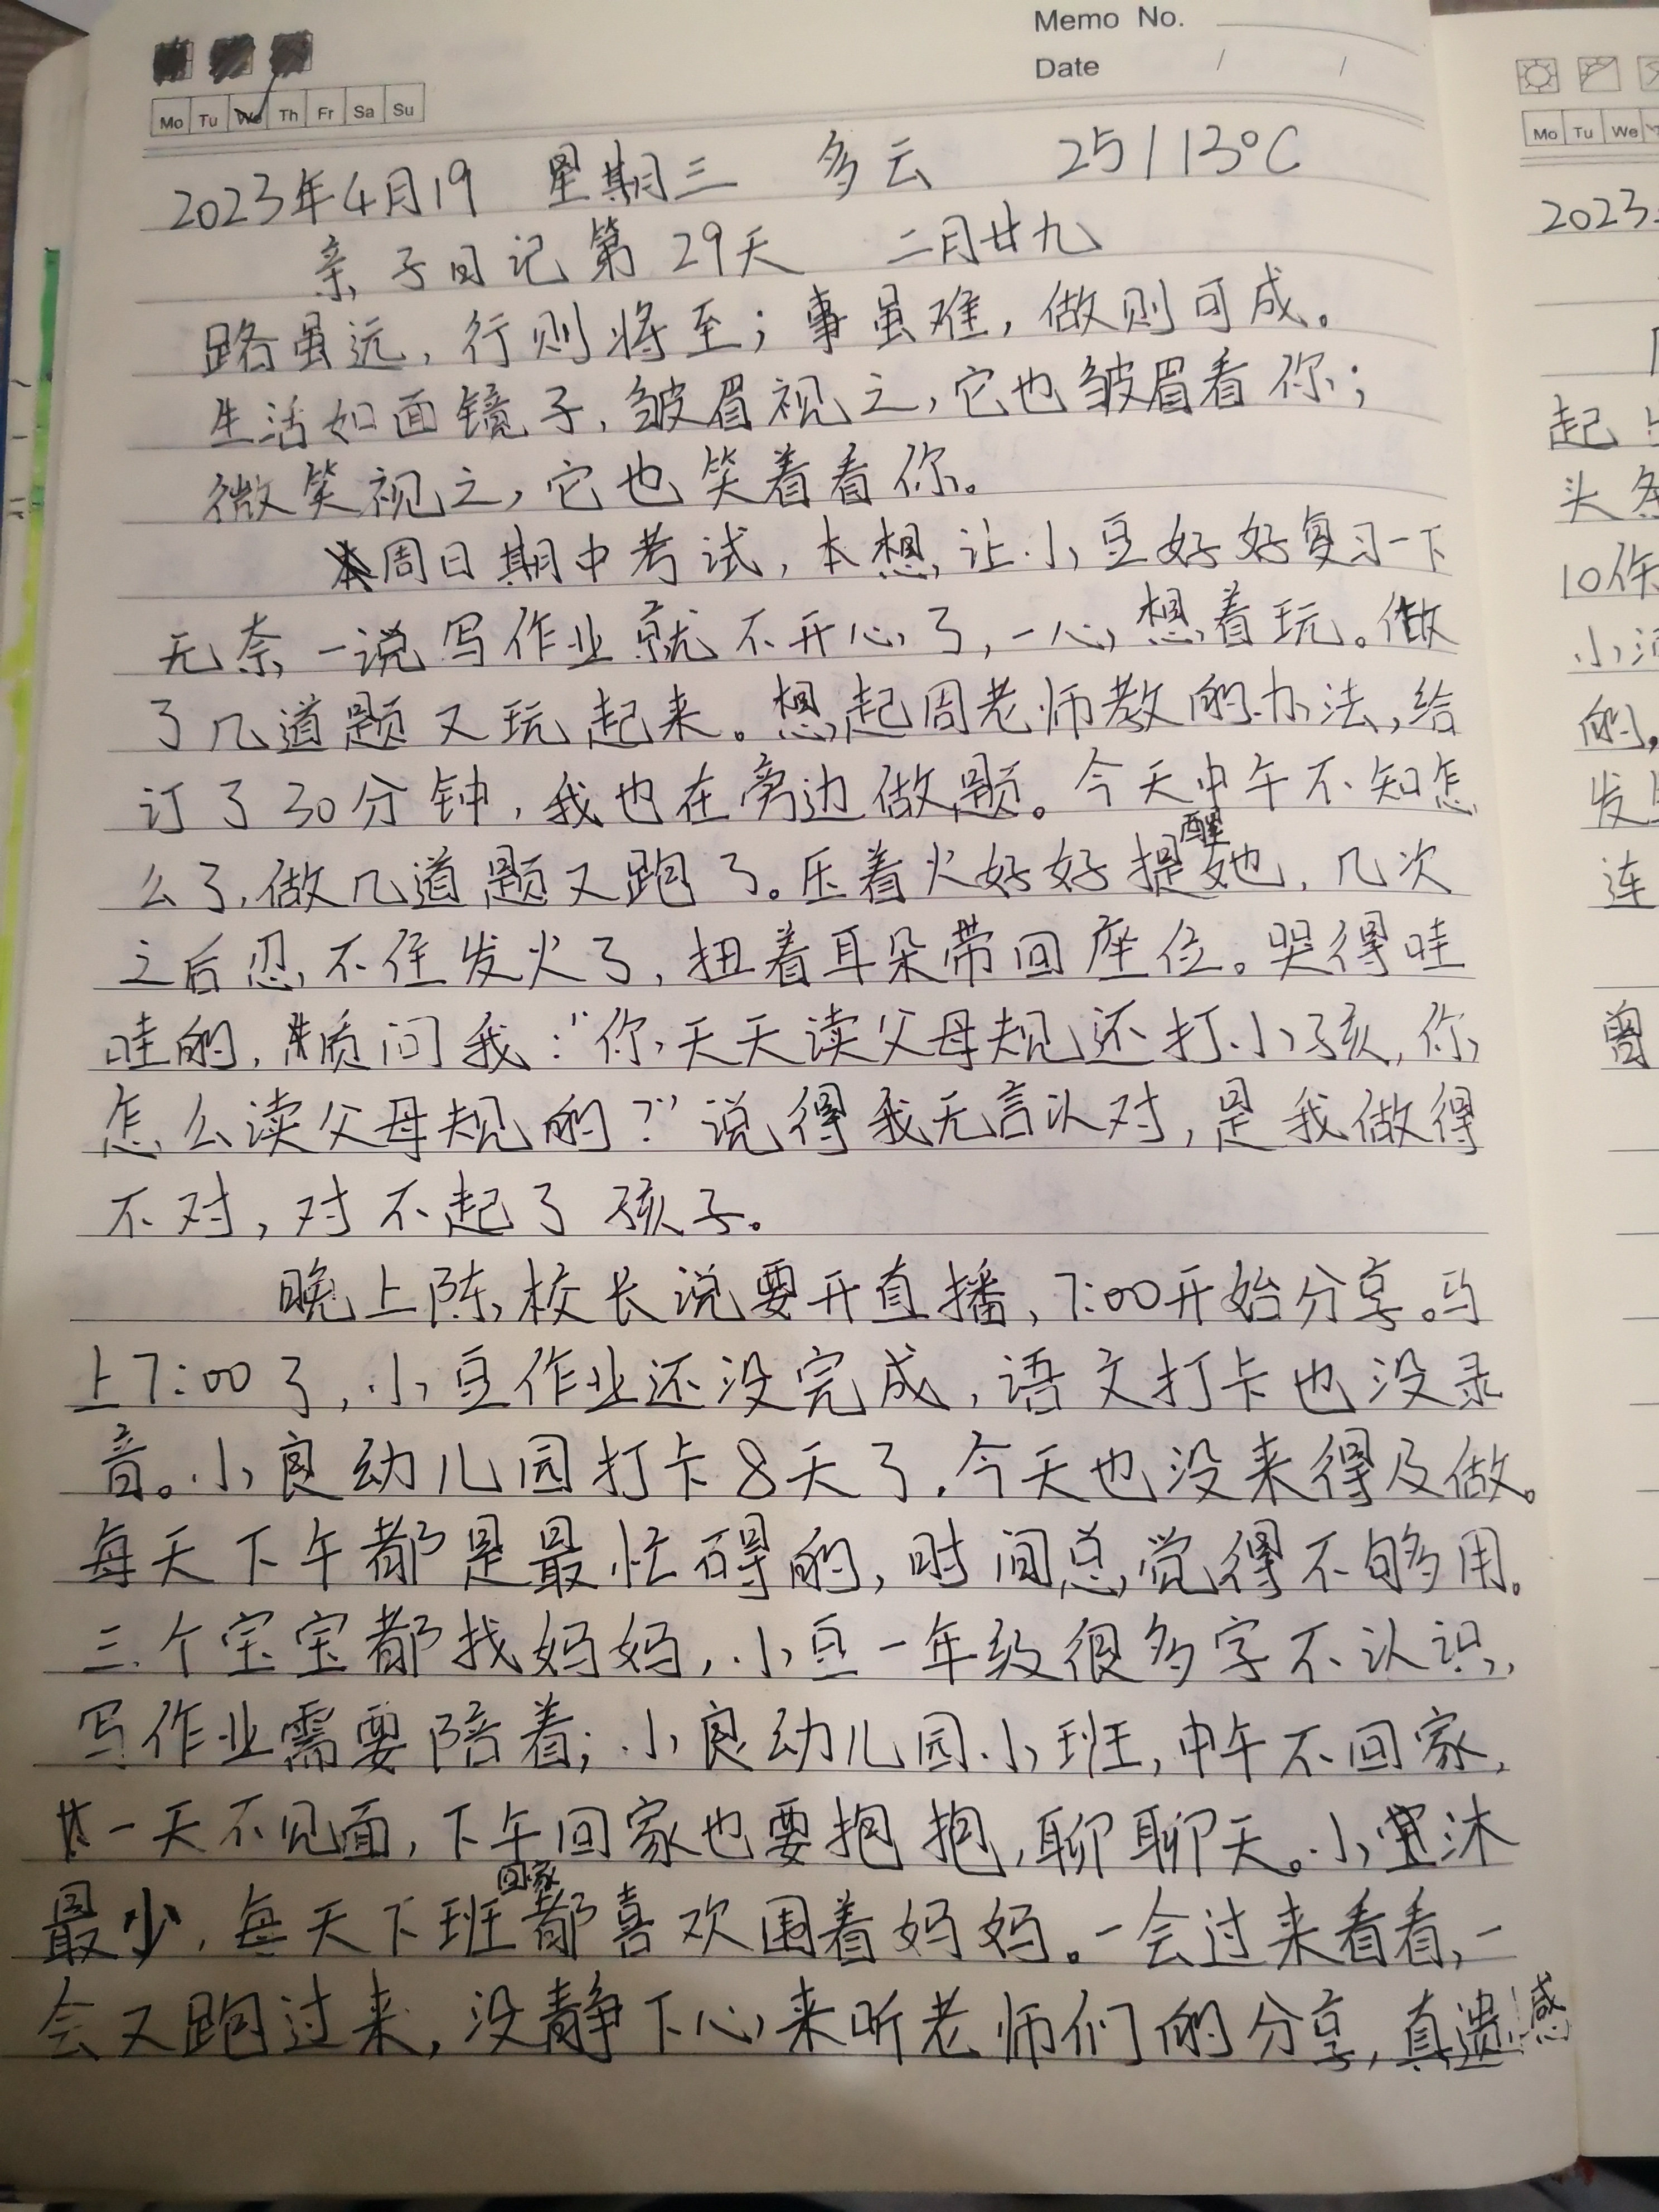 Memo No.
Date / /
Mo Tu We Th Fr Sa Su
2023年4月19 星期三 多云 25/13°C
亲子日记第29天 二月廿九
路虽远，行则将至；事虽难，做则可成。
生活如面镜子，皱眉视之，它也皱眉看你；
微笑视之，它也笑着看你。
本周日期中考试，本想让小豆好好复习一下
无奈一说写作业就不开心了，一心想着玩。做
了几道题又玩起来。想起周老师教的办法，给
订了30分钟，我也在旁边做题。今天中午不知怎
么了，做几道题又跑了。压着火好好提醒她，几次
之后忍不住发火了，扭着耳朵带回座位。哭得哇
哇的，质问我：“你天天读父母规还打小孩，你
怎么读父母规的？”说得我无言以对，是我做得
不对，对不起了孩子。
晚上陈校长说要开直播，7:00开始分享。马
上7:00了，小豆作业还没完成，语文打卡也没录
音。小良幼儿园打卡8天了，今天也没来得及做。
每天下午都是最忙碍的，时间总觉得不够用。
三个宝宝都找妈妈，小豆一年级很多字不认识，
写作业需要陪着；小良幼儿园小班，中午不回家，
一天不见面，下午回家也要抱抱，聊聊天。小宝沐
最少，每天下班回家都喜欢围着妈妈。一会过来看看，一
会又跑过来，没静下心来听老师们的分享，真遗感
Mo Tu We
2023
起
头条
10件
小
的，
发
连
曾